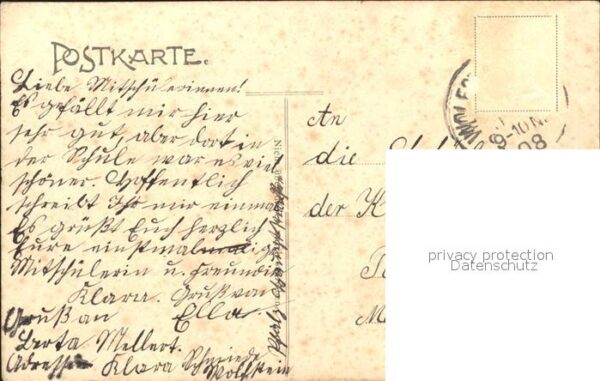 POSTKARTE.
Liebe Mitschülerinnen!
Es gefällt mir hier
sehr gut, aber dort in
der Schule war es viel
schöner. Hoffentlich
schreibt Ihr mir einmal
Es grüßt Euch herzlich
Eure einstmalige
Mitschülerin u. Freundin
Klara. Gruß von
Gruß an Ella.
Berta Mellert.
Adresse Klara Schmiede
Wolfstein
Pfalz
An
die
der K
9-10 N
08
privacy protection
Datenschutz